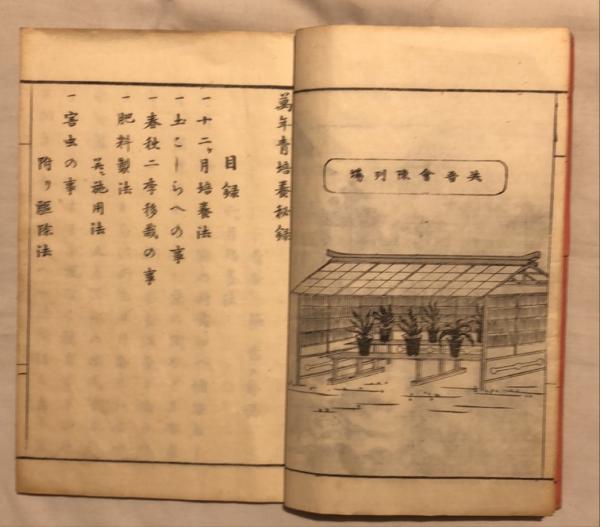 英會陳列場
萬年青培養秘録
目録
一十二ヶ月培養法
一土こしらへの事
一春秋二季移栽の事
一肥料製法
施用法
一害虫の事
附り驅除法